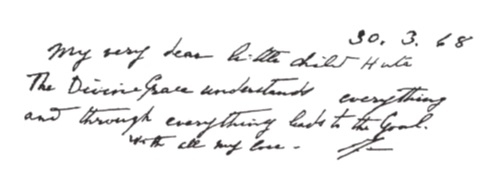 30. 3. 68
My very dear little child Huta
The Divine Grace understands everything
and through everything leads to the Goal.
With all my love -